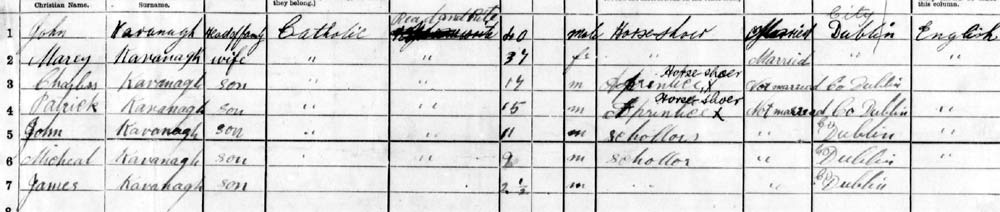 Christian Name. Surname. they belong.) this column.
1 John Kavanagh Head of family Catholic Read and Write 40 male Horse shoer Married City Dublin English
2 Marey Kavanagh wife " " 37 fe " Married " "
3 Charles Kavanagh son " " 17 m Aprintice x Horse shoer Not married Co Dublin "
4 Patrick Kavanagh son " " 15 m Aprintice x Horse shoer Not married Co Dublin "
5 John Kavanagh son " " 11 m schollors " Co Dublin "
6 Micheal Kavanagh son " " 9 m schollor " Co Dublin "
7 James Kavanagh son 2 1/2 m " Co Dublin
8